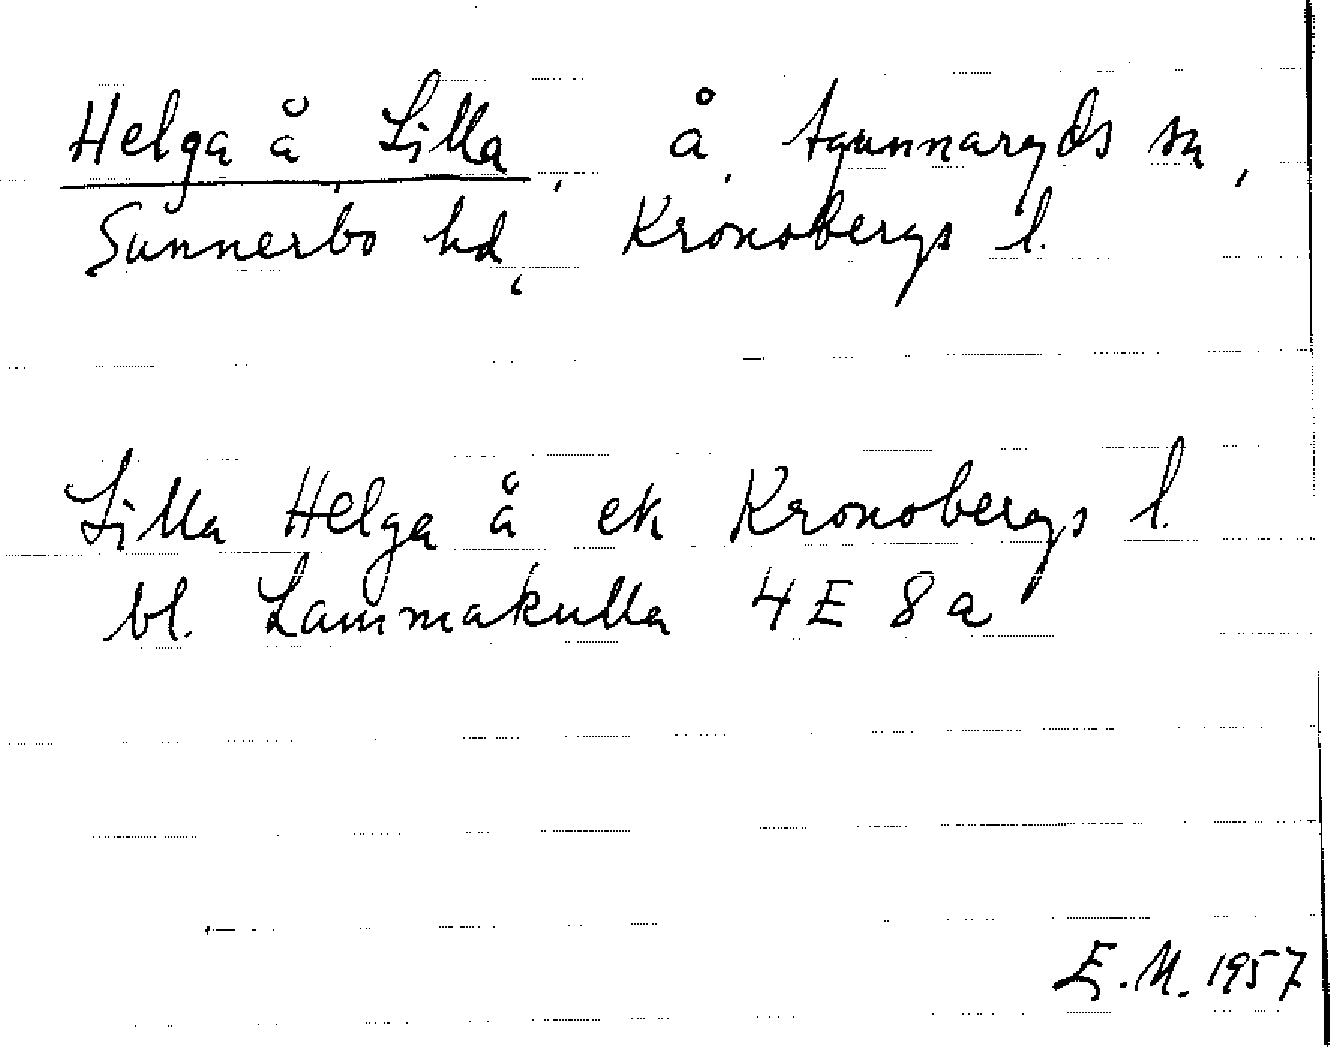 Helga å Lilla, å, Agunnaryds sn,
Sunnerbo hd, Kronobergs l.
Lilla Helga å ek Kronobergs l.
bl. Lammakulla 4E 8a
E.M. 1957